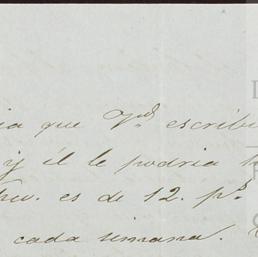 que Vd. escribi
y él le podria
es de 12. ps.
cada semana.